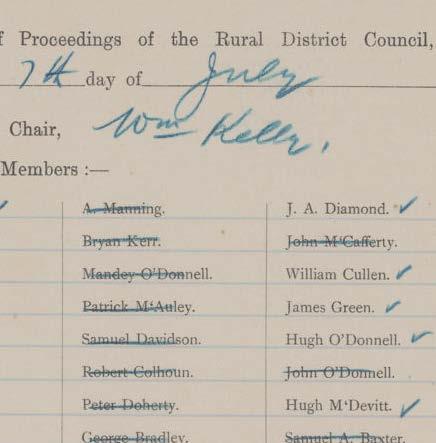 f Proceedings of the Rural District Council,
7th day of July
Chair, Wm Kelly.
Members :—
A. Manning. J. A. Diamond.
Bryan Kerr. John M‘Cafferty.
Mandey O’Donnell. William Cullen.
Patrick M‘Auley. James Green.
Samuel Davidson. Hugh O’Donnell.
Robert Colhoun. John O’Donnell.
Peter Doherty. Hugh M‘Devitt.
George Bradley. Samuel A. Baxter.